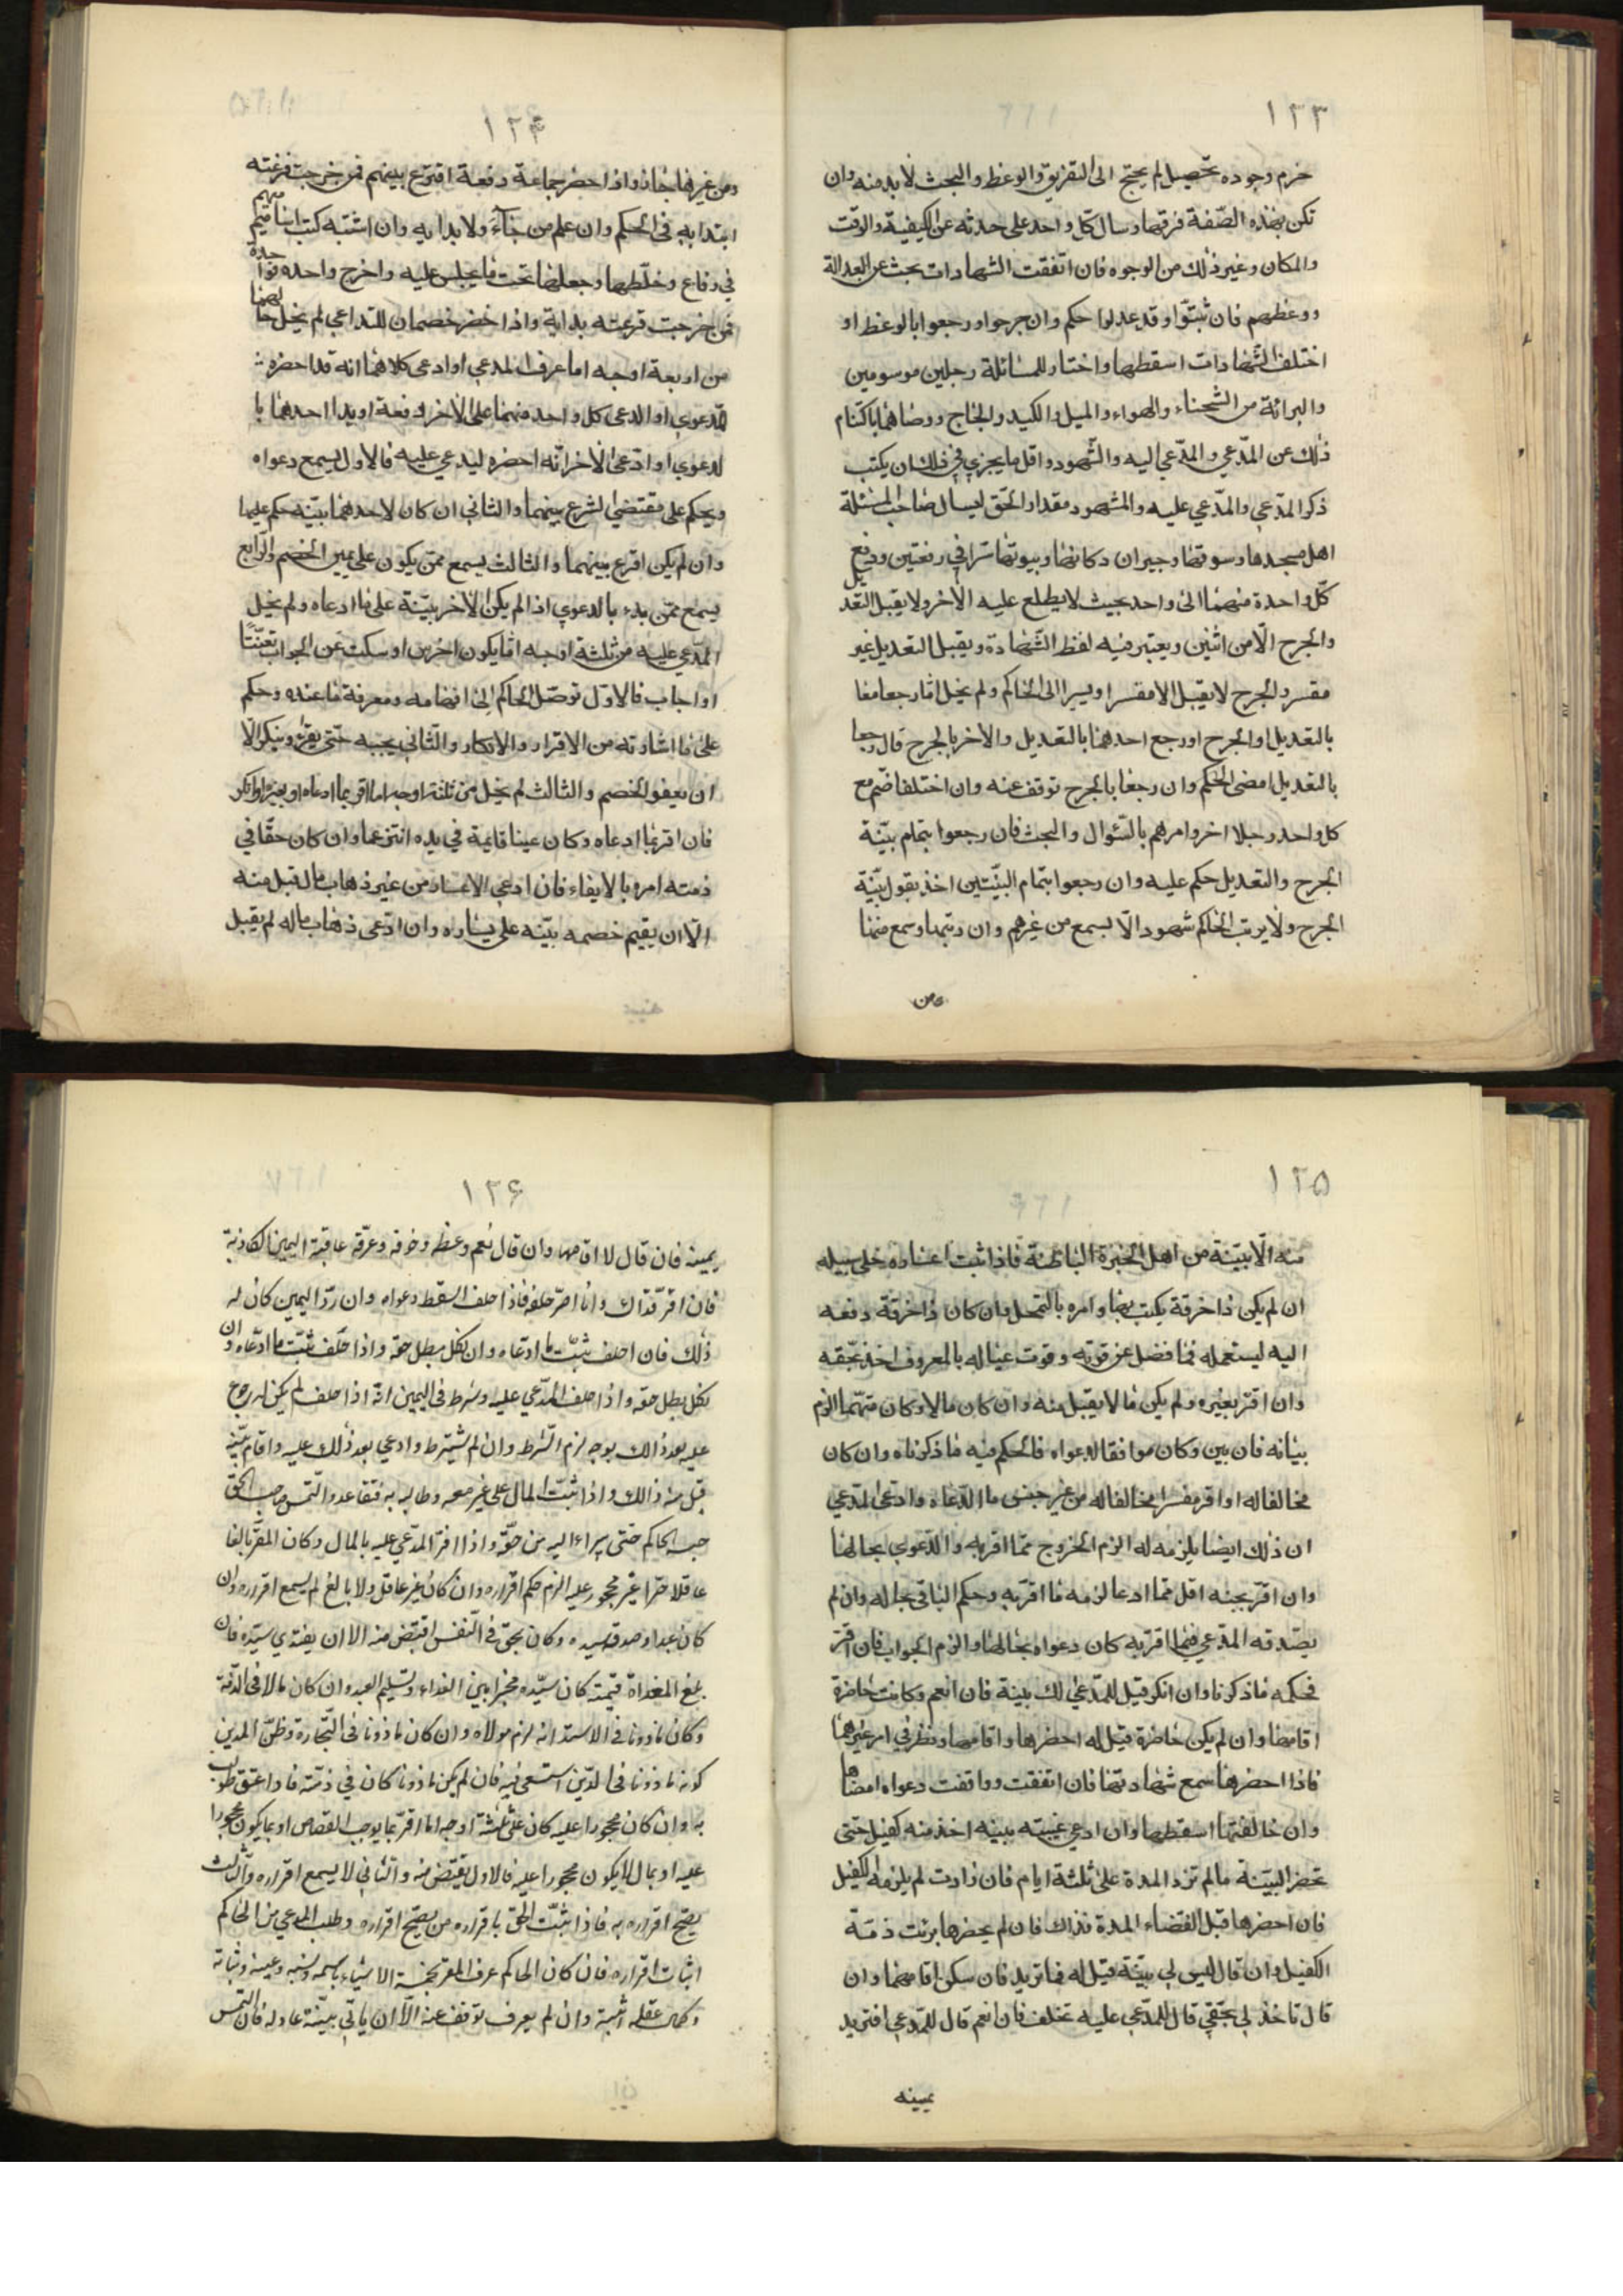 ١٢٣
خرم وجوده تحصيل لم يحتج الى التفريق والوعظ والبحث لا بد منه وان
تكن بهذه الصّفة فرقها وسال كل واحد على حدثه عن الكيفيّة والوقت
والمكان وغير ذلك من الوجوه فان اتفقت الشهادات بحث عن العدالة
ووعظهم فان ثبتوا وقد عدلوا حكم وان جرحوا ورجعوا بالوعظ او
اختلف الشهادات اسقطها واختار للمسائلة رجلين موسومين
والبرائة من الشحناء والهواء والميل والكيد والجاج ووصاهما باكتام
ذلك عن المدّعي والمدّعي اليه والشهود واقل ما يجزي في ذلك ان يكتب
ذكر المدّعي والمدّعي عليه والمشهود مقدار الحق ليسال صاحب المسئلة
اهل مسجدها وسوقها وجيران دكانها وبيوتها سرا في رقعتين ودفع
كل واحدة منهما الى واحد بحيث لا يطلع عليه الاخر ولا يقبل التعد
يل
والجرح الّا من اثنين ويعتبر فيه لفظ الشهادة ويقبل التعديل غير
مفسر والجرح لا يقبل الا مفسرا ويسرا الى الحاكم ولم يخل اما رجعا معا
بالتعديل او الجرح او رجع احدهما بالتعديل والاخر بالجرح قال رجعا
بالتعديل امضى الحكم وان رجعا بالجرح توقف عنه وان اختلفا ضم مع
كل واحد رجلا اخر وامرهم بالسّئوال والبحث فان رجعوا بتمام بيّنة
الجرح والتعديل حكم عليه وان رجعوا بتمام البيّنتين اخذ بقول بيّنة
الجرح ولا يرتب الحاكم شهود الّا يسمع من غيرهم وان رتبها وسمع منها
ومن
١٢۴
ومن غيرها جاز واذا حضر جماعة دفعة اقترع بينهم فمن خرجت قرعته
ابتدا به في الحكم وان علم من جآء ولا بدا به وان اشتبه كتب اساميهم
في رقاع وخلّطها وجعلها تحت ما يجلس عليه واخرج واحده فوا
حدة
فمن خرجت قرعته بدا به واذا حضر خصمان للتداعي لم يخل حا
لهما
من اربعة اوجه اما عرف المدعي او ادعى كلاهما انه قد احضره
للدعوي او الدعى كل واحد منهما على الاخر دفعة او بدا احدهما با
لدعوي او ادّعى الاخر انّه احضره ليدعي عليه فالاول يسمع دعواه
ويحكم على مقتضى الشرع بينهما والثاني ان كان لاحدهما بيّنه حكم عليها
وان لم يكن اقرع بينهما والثالث يسمع ممّن يكون على يمين الخصم والرابع
يسمع ممّن بدء بالدعوي اذا لم يكن الاخر بيّنة على ما ادعاه ولم يخل
المدّعي عليه من ثلثة اوجه امّا يكون اخرس او سكت عن الجواب تعنّتًا
او اجاب فالاول توصّل الحاكم الى افهامه ومعرفة ما عنده وحكم
على ما اشارته من الاقرار والانكار والثاني يجبه حتى يقرّ وينكر الّا
ان يعفو الخصم والثالث لم يخل من ثلثة اوجه اما اقر بما ادعاه او بغيره او انكر
فان اقر بما ادعاه وكان عينا قايمة في يده انتزعها وان كان حقّا في
ذمته امره بالايفاء فان ادعي الاعسار من غير ذهاب مال قبل منه
الّا ان يقيم خصمه بيّنه على يساره وان ادّعى ذهاب ماله لم يقبل
١٢۵
منه الّا ببيّنة من اهل الخبرة الباطنة فاذا ثبت اعساره خلى سبيله
ان لم يكن ذا حرفة يكتب بها وامره بالتمحل وان كان ذا حرفة دفعه
اليه ليستعمله فما فضل عن قوته وقوت عياله بالمعروف اخذ بحقه
وان اقر بغيره ولم يكن مالا يقبل منه وان كان مالا وكان متهما الزم
بيانه فان بين وكان موافقا لدعواه فالحكم فيه ما ذكرناه وان كان
مخالفا له او اقر مفسرا مخالفا له من غير جنس ما الدّعاه وادّعى المدّعي
ان ذلك ايضا يلزمه له الزم الخروج ممّا اقر به والدّعوي بحالها
وان اقرّ بجنه اقل ممّا ادعا لزمه ما اقرّ به وحكم الباقي بحاله وان لم
يصدقه المدّعي فيما اقرّ به كان دعواه بحالها والزم الجواب فان اقرّ
فحكمه ما ذكرنا وان انكر قيل للمدّعي لك بيّنة فان انعم وكانت حاضرة
اقامها وان لم يكن حاضرة قيل له احضرها واقامها ونظر في امر غيرهما
فاذا احضرها سمع شهادتها فان اتفقت ووافقت دعواه امضاها
وان خالفتها اسقطها وان ادعى غيبته بينه اخذ منه كفيل حتى
تحضر البيّنة مالم تزد المدة على ثلثة ايام فان زادت لم يلزمه الكفيل
فان احضرها قبل القضاء المدة فذاك فان لم يحضرها برئت ذمّة
الكفيل وان قال ليس لي بيّنة قيل له فما تريد فان سكن اقامهما وان
قال تاخذ لي بحقّي قال للمدّعي عليه تحلف فان انعم قال للمدعي افتريد
يمينه
١٢۶
يمينه فان قال لا اقامهما وان قال نعم وعظه وخوفه وعرّفه عاقبة اليمين الكاذبة
فان اقرّ فذاك وان اصرّ حلفه فاذا حلف السقط دعواه وان ردّ اليمين كان له
ذلك فان احلف ثبّت ما ادعاه وان نكل بطل حقه واذا حلف ثبت ما ادّعاه وان
نكل بطل حقه واذا حلف المدّعي عليه وشرط في اليمين انه اذا حلف لم يكن له رجوع
عليه بعد ذالك بوجه لزم الشّرط وان لم يشترط وادعي بعد ذلك عليه واقام بيّنة
قبل منه ذالك واذا ثبّت المال على غير معه وطالبه به فتقاعد والتمس صاحب الحقّ
حبسه الحاكم حتى يبراء اليه من حقّه واذا اقرّ المدّعي عليه بالمال وكان المقرّ بالغا
عاقلا حرّا غير محجور عليه الزم حكم اقراره وان كان غير عاقل ولا بالغ لم يسمع اقراره وان
كان عبدا وصدقه سيده وكان بحق في النّفس اقتصّ منه الا ان يفتدي سيّده فان
بلغ المفداة قيمته كان سيّده مخيرا بين الفداء وتسليم العبد وان كان مالا في الذّمة
وكان ماذونا في الاستدانه لزم مولاه وان كان ماذونا في التّجارة وظنّ المدين
كونه ماذونا في الدّين استسعى فيه فان لم يكن ماذونا كان في ذمّته فاذا عتق طولب
به وان كان محجورا عليه كان على ثلثة اوجه اما اقرّ بما يوجب القصاص او بما يكون محجورا
عليه او بمال لا يكون محجورا عليه فالاول يقتصّ منه والثاني لا يسمع اقراره والثالث
يصّح اقراره به فاذا ثبّت الحق باقراره من يصّح اقراره وطلب المدعي من الحاكم
اثبات اقراره فان كان الحاكم عرف المقر بخمسة الاشياء باسمه ونسبه وعينه وثباته
وكمال عقله اثبته وان لم يعرف توقف عنه الّا ان ياتي ببيّنة عادلة فان التمس